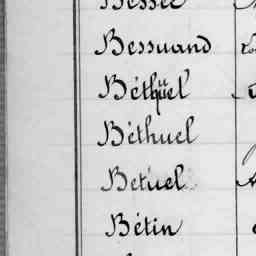 Bessuand
Béthüel
Béthuel
Betuel
Bétin